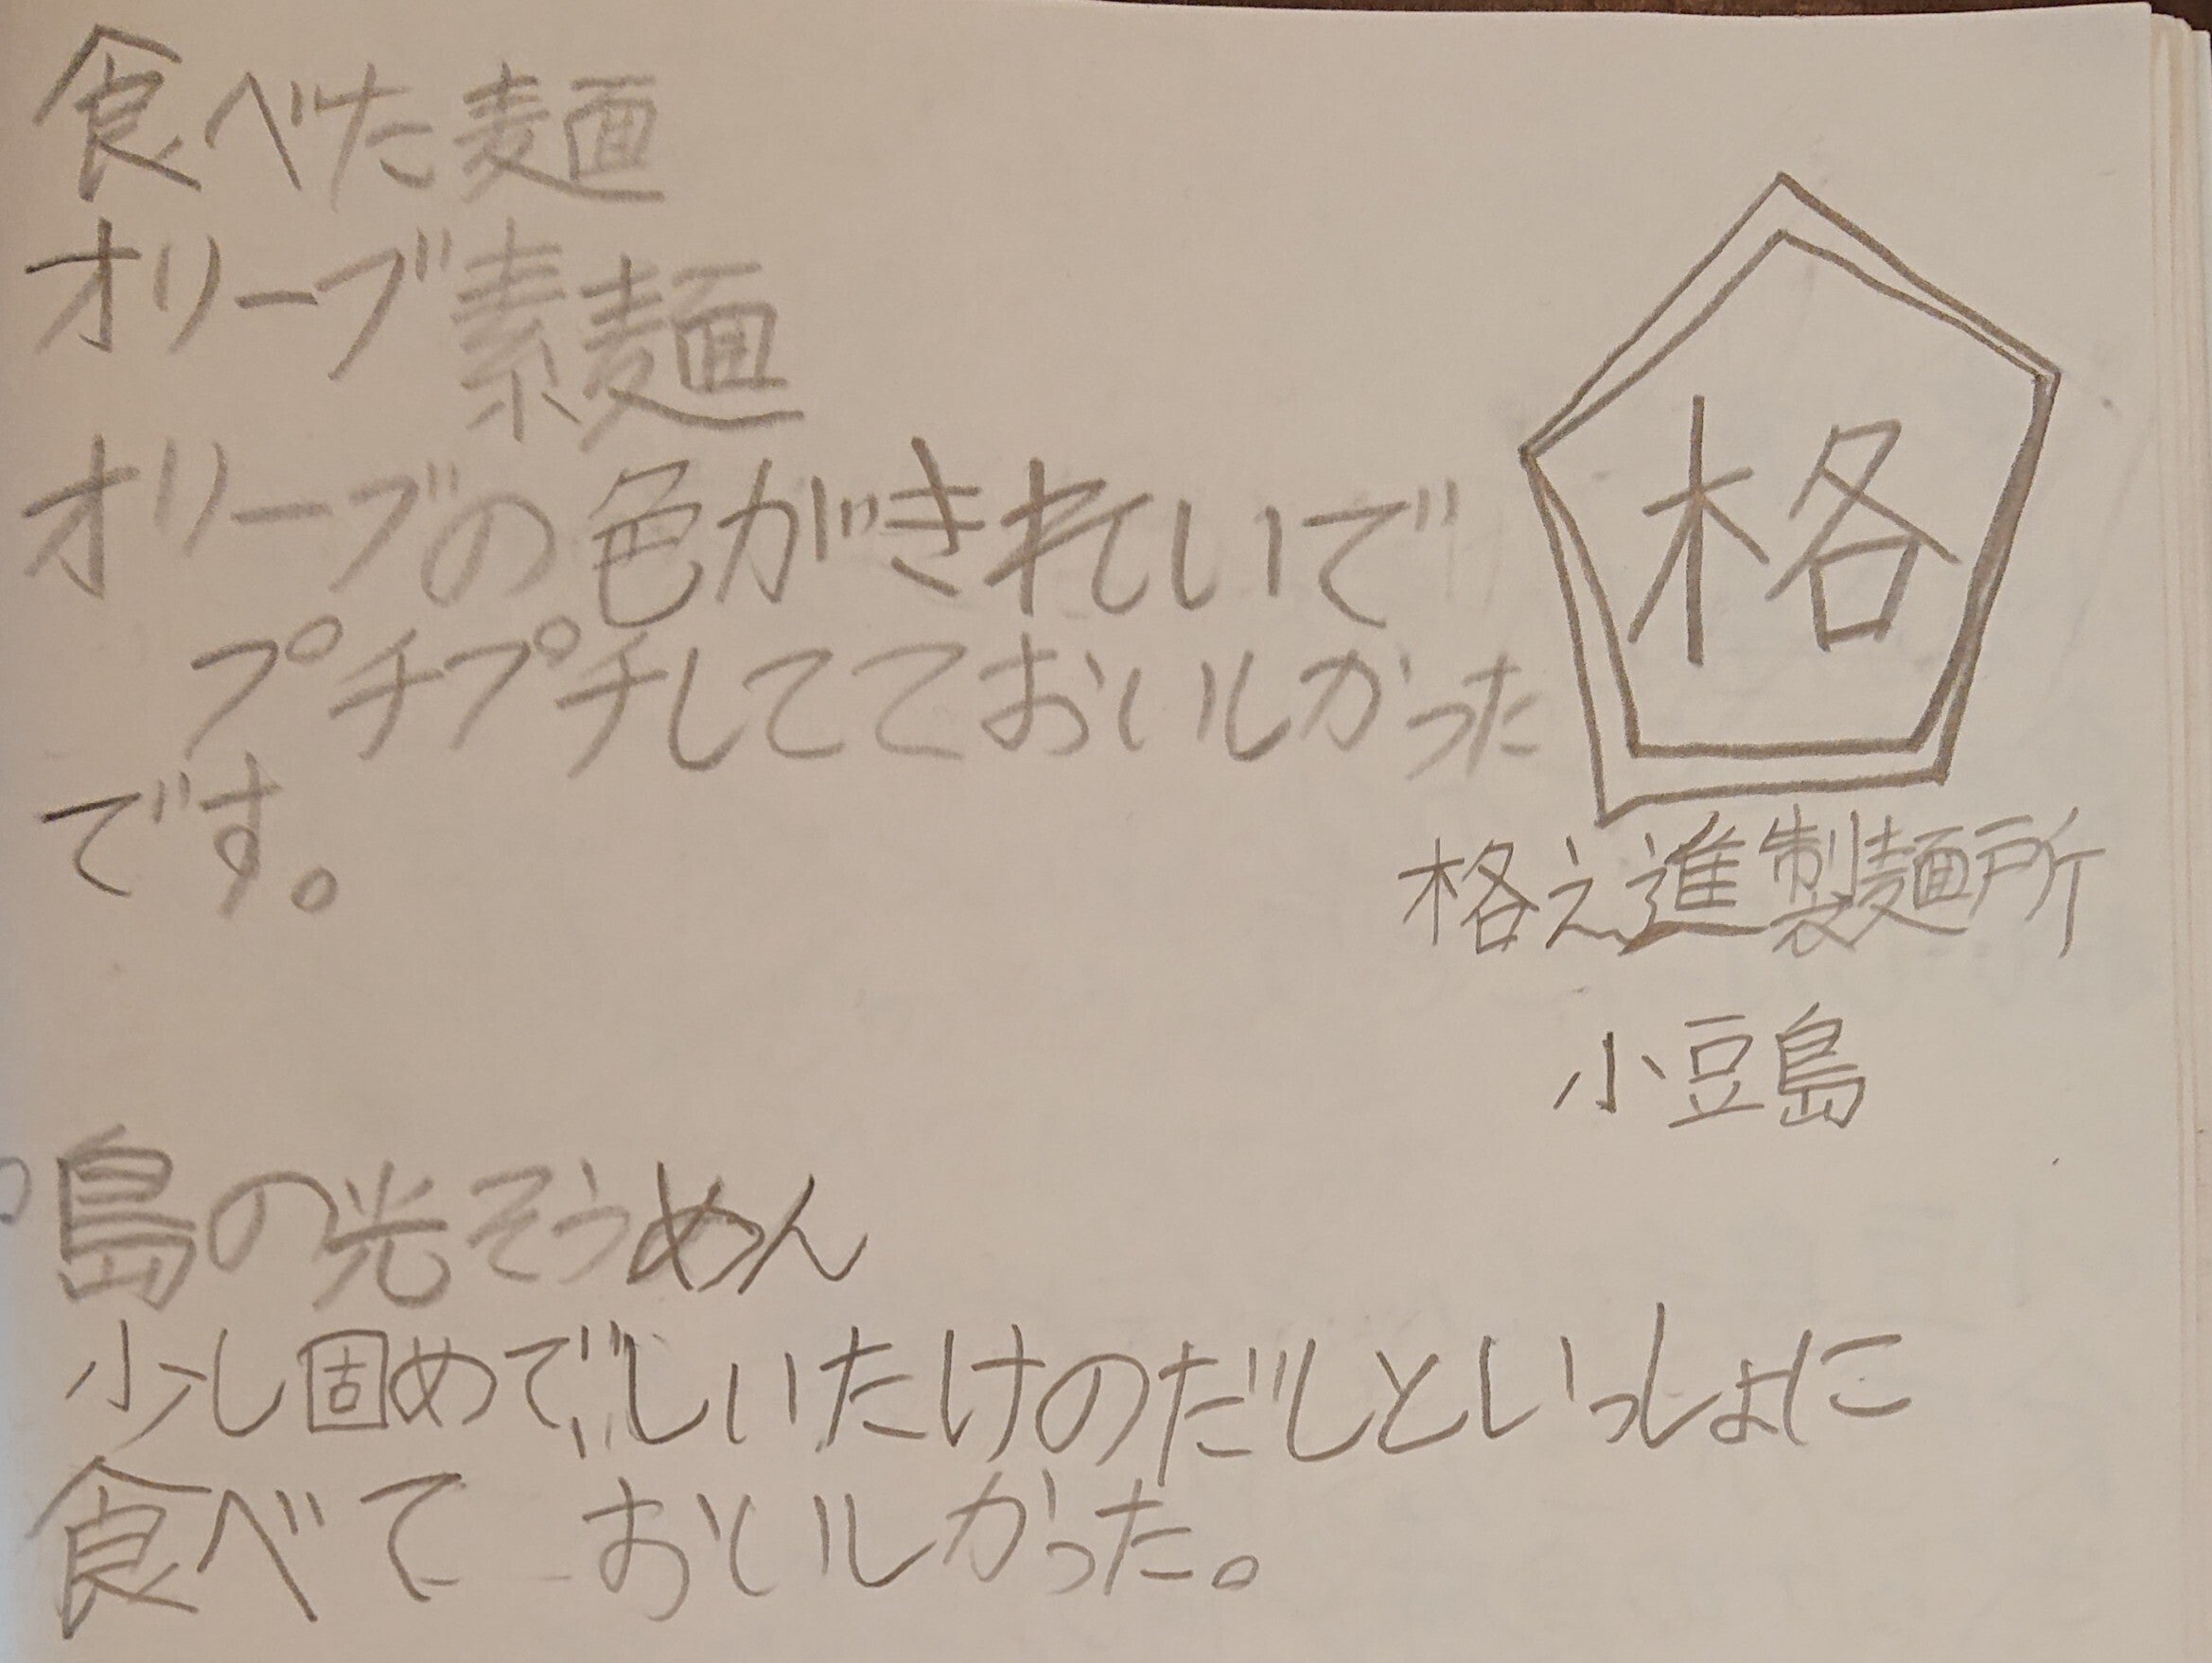 食べた麺
オリーブ素麺
オリーブの色がきれいで
プチプチしてておいしかった
です。
格
格之進製麺所
小豆島
島の光そうめん
少し固めでしいたけのだしといっしょに
食べて おいしかった。